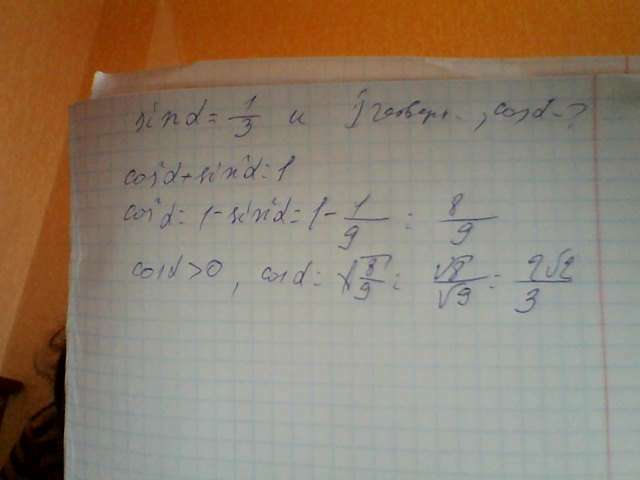 sin α = 1/3 и I четверт. , cos α - ?
cos²α + sin²α = 1
cos²α = 1 - sin²α = 1 - 1/9 = 8/9
cos α > 0, cos α = √8/9 = √8/√9 = 2√2/3